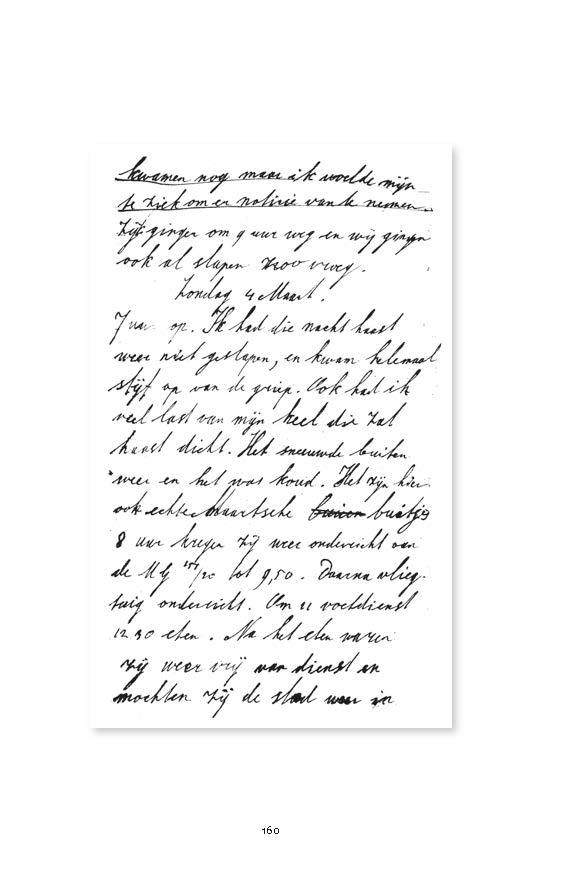 kwamen nog maar ik voelde mijn
te ziek om er notitie van te nemen.
Zij gingen om 9 uur weg en wij gingen
ook al slapen zoo vroeg.
Zondag 4 Maart.
7 uur op. Ik had die nacht haast
weer niet geslapen, en kwam helemaal
stijf op van de griep. Ook had ik
veel last van mijn keel die zat
haast dicht. Het sneeuwde buiten
weer en het was koud. Het zijn hier
ook echte Maartsche buien buitjes
8 uur kregen zij weer onderricht van
de MG 151/20 tot 9,50. Daarna vlieg-
tuig onderricht. Om 11 voetdienst
12 30 eten. Na het eten waren
zij weer vrij van dienst en
mochten zij de stad weer in
160